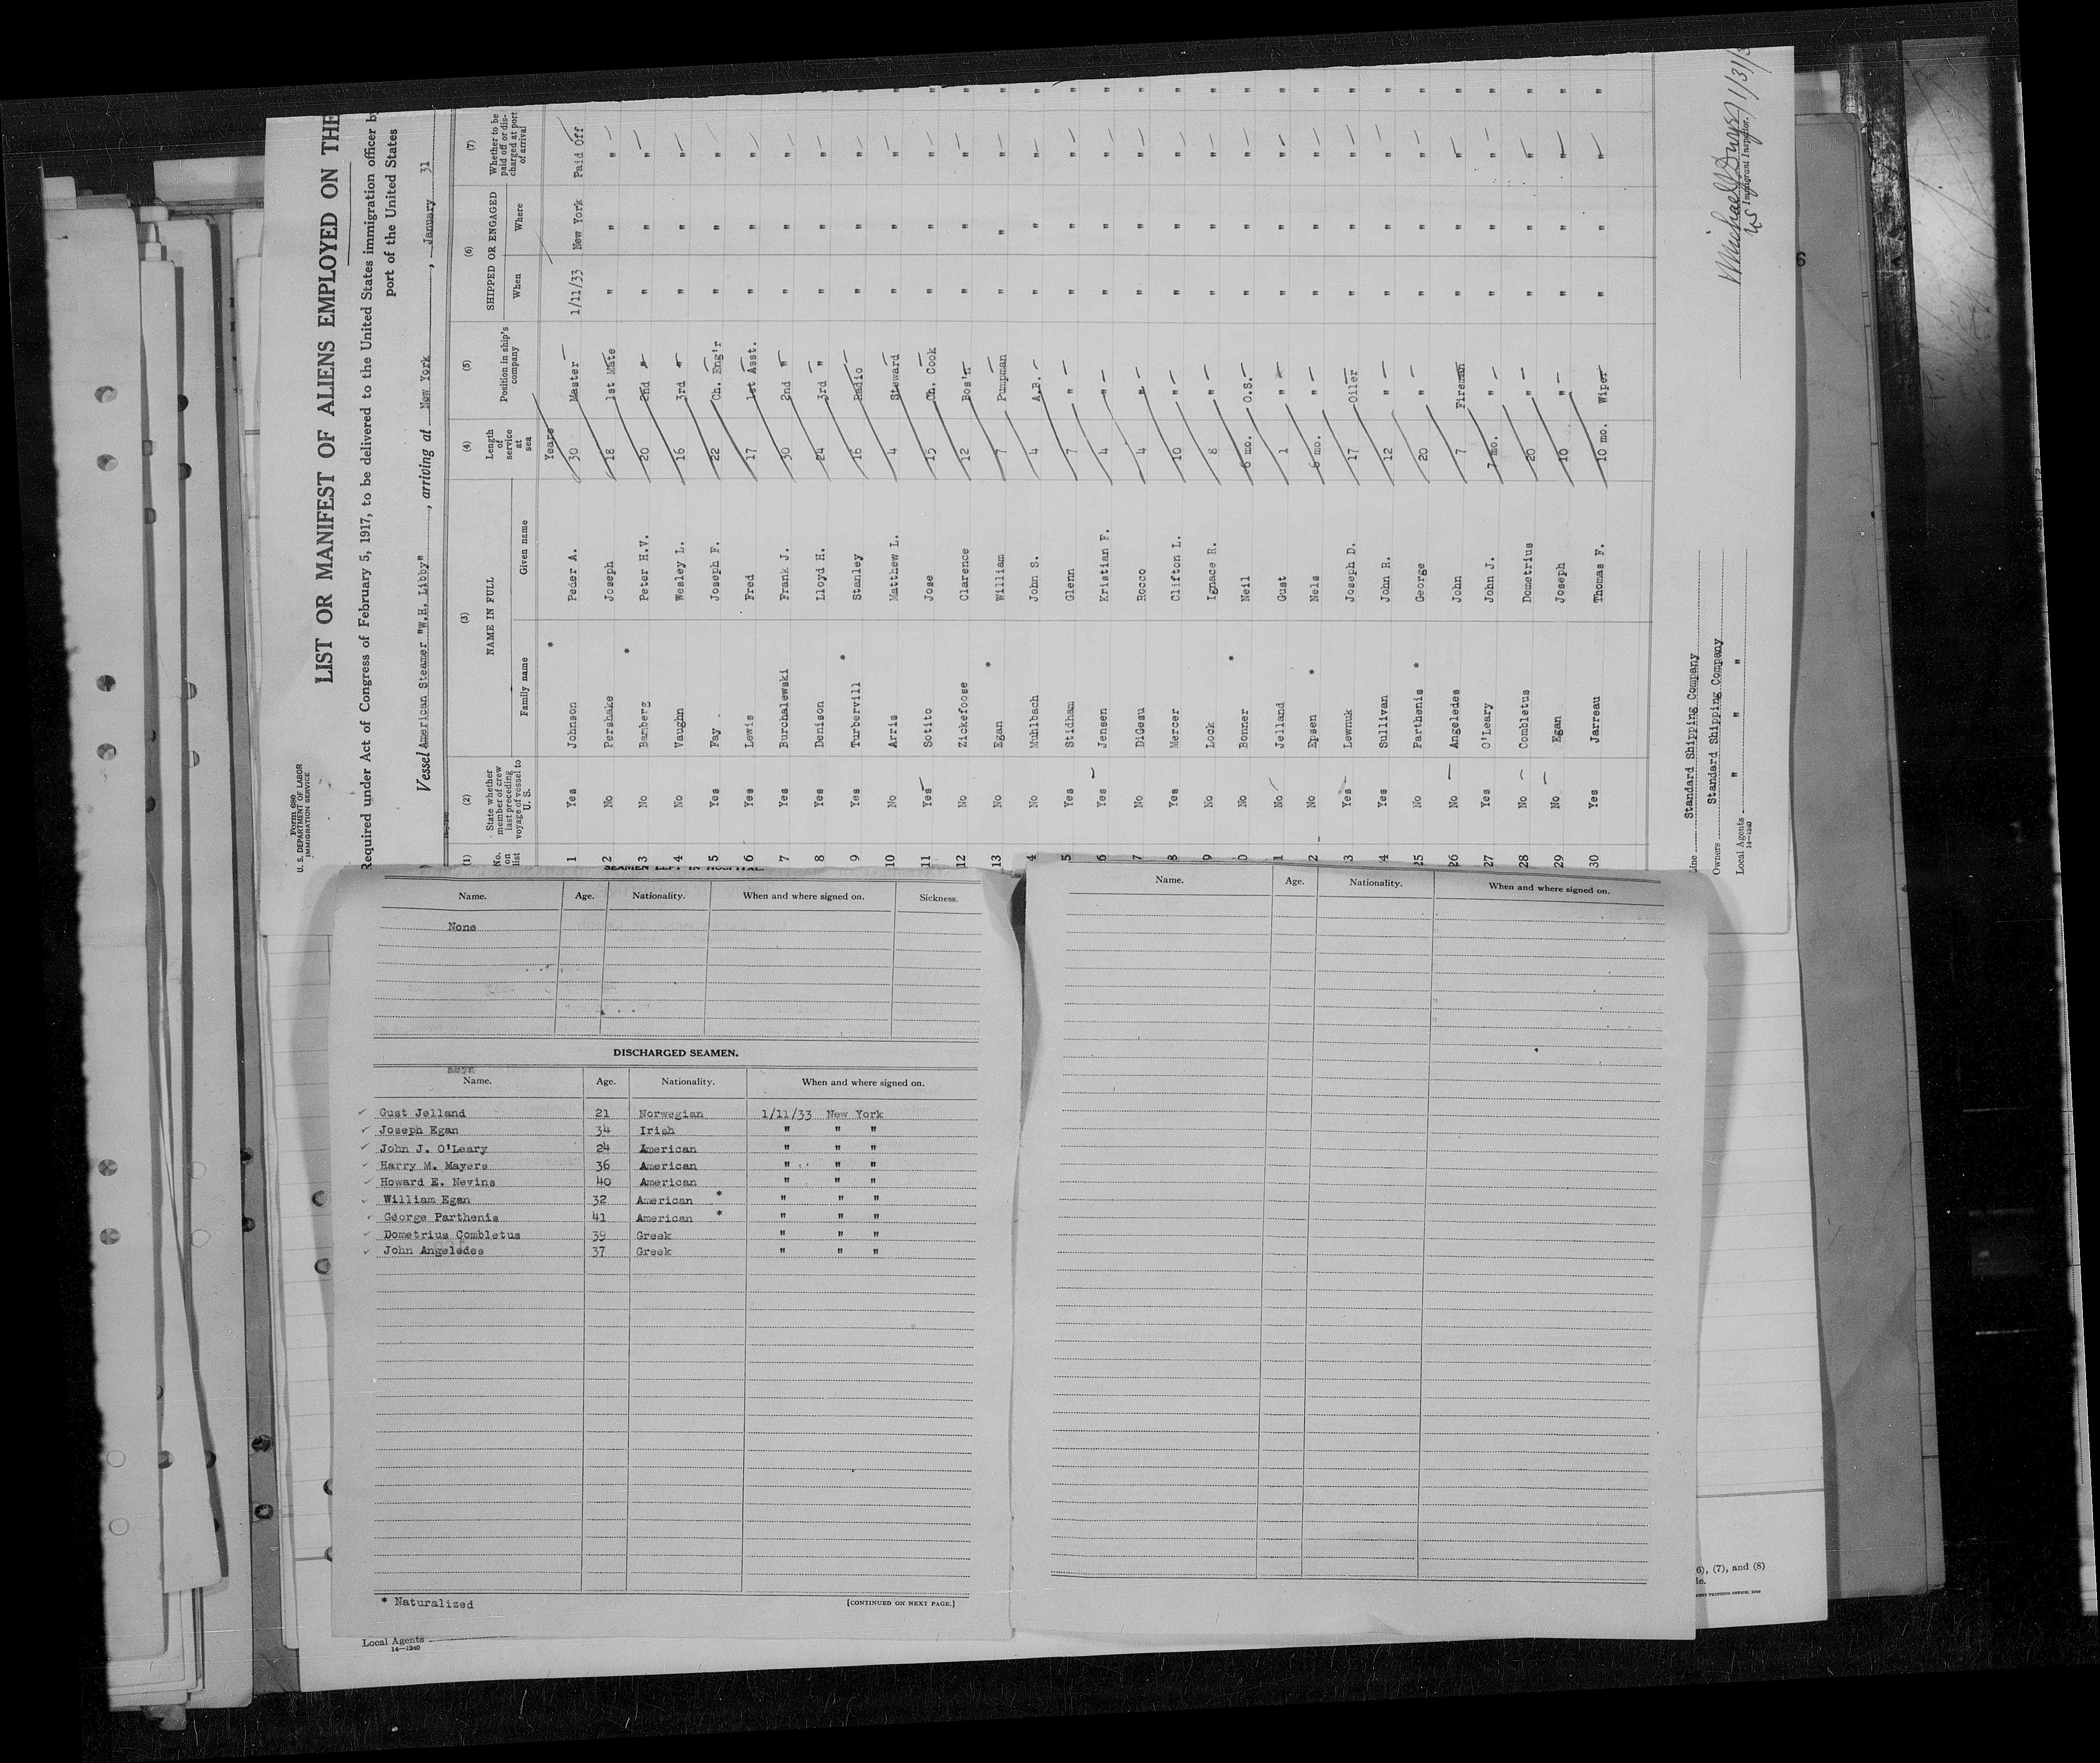 Form 680
U. S. DEPARTMENT OF LABOR
IMMIGRATION SERVICE
LIST OR MANIFEST OF ALIENS EMPLOYED ON THE
Required under Act of Congress of February 5, 1917, to be delivered to the United States immigration officer by
port of the United States
Vessel American Steamer "W.H. Libby", arriving at New York, January 31
(1) (2) (3) (4) (5) (6) (7)
No. on list State whether member of crew last preceding voyage of vessel to U. S. NAME IN FULL Family name Given name Length of service at sea Position in ship's company SHIPPED OR ENGAGED When Where Whether to be paid off or discharged at port of arrival
Years
1 Yes Johnson * Peder A. 30 Master 1/11/33 New York Paid Off
2 No Pershake Joseph 18 1st Mate " " "
3 No Bamberg * Peter H.V. 20 2nd " " " "
4 No Vaughn Wesley L. 16 3rd " " " "
5 Yes Fay Joseph F. 22 Ch. Eng'r " " "
6 Yes Lewis Fred 17 1st Asst. " " "
7 Yes Burchalewski Frank J. 30 2nd " " " "
8 Yes Denison Lloyd H. 24 3rd " " " "
9 Yes Turbervill * Stanley 16 Radio " " " "
10 No Arris Matthew L. 4 Steward " " " "
11 Yes Sotito Jose 15 Ch. Cook " " " "
12 No Zickefoose Clarence 12 Bos'n " " " "
13 No Egan * William 7 Pumpman " " " "
4 No Muhlbach John S. 4 A.B. " " " "
5 Yes Stidham Glenn 7 " " " " "
6 Yes Jensen Kristian F. 4 " " " " "
7 No DiGesu Rocco 4 " " " " "
8 Yes Mercer Clifton L. 10 " " " " "
9 No Lock Ignace R. 8 " " " " "
0 No Bonner * Neil 6 mo. O.S. " " " "
1 No Jelland Gust 1 " " " " "
2 No Epsen * Nels 6 mo. " " " " "
3 Yes Lewnuk Joseph D. 17 Oiler " " " "
4 Yes Sullivan John R. 12 " " " " "
25 No Parthenis * George 20 " " " " "
26 No Angeledes John 7 Fireman " " " "
27 Yes O'Leary John J. 7 mo. " " " " "
28 No Combletus Dometrius 20 " " " " "
29 No Egan Joseph 10 " " " " "
30 Yes Jarreau Thomas F. 10 mo. Wiper " " " "
Line Standard Shipping Company
Owners Standard Shipping Company
Local Agents " " "
14—1240
Immigrant Inspector.
1/31/3
SEAMEN LEFT IN HOSPITAL.
Name. Age. Nationality. When and where signed on. Sickness.
None
DISCHARGED SEAMEN.
Name. Age. Nationality. When and where signed on.
Gust Jelland 21 Norwegian 1/11/33 New York
Joseph Egan 34 Irish " " "
John J. O'Leary 24 American " " "
Harry M. Mayers 36 American " " "
Howard E. Nevins 40 American " " "
William Egan 32 American * " " "
George Parthenis 41 American * " " "
Dometrius Combletus 39 Greek " " "
John Angeledes 37 Greek " " "
* Naturalized
[CONTINUED ON NEXT PAGE.]
Local Agents
14—1240
Name. Age. Nationality. When and where signed on.
6), (7), and (8)